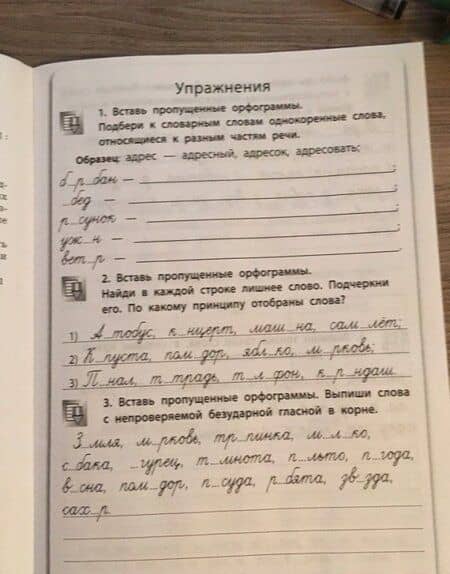 Упражнения
1. Вставь пропущенные орфограммы.
Подбери к словарным словам однокоренные слова,
относящиеся к разным частям речи.
Образец: адрес — адресный, адресок, адресовать;
б_р_бан — ;
_бед — ;
р_сунок — ;
уж_н — ;
вет_р — .
2. Вставь пропущенные орфограммы.
Найди в каждой строке лишнее слово. Подчеркни
его. По какому принципу отобраны слова?
1) А_тобус, к_нцерт, маш_на, сам_лёт;
2) К_пуста, пом_дор, ябл_ко, м_рковь;
3) П_нал, т_традь, т_л_фон, к_р_ндаш.
3. Вставь пропущенные орфограммы. Выпиши слова
с непроверяемой безударной гласной в корне.
З_мля, м_рковь, тр_пинка, м_л_ко,
с_бака, _гурец, т_мнота, п_льто, п_года,
в_сна, пом_дор, п_суда, р_бята, зв_зда,
сах_р.